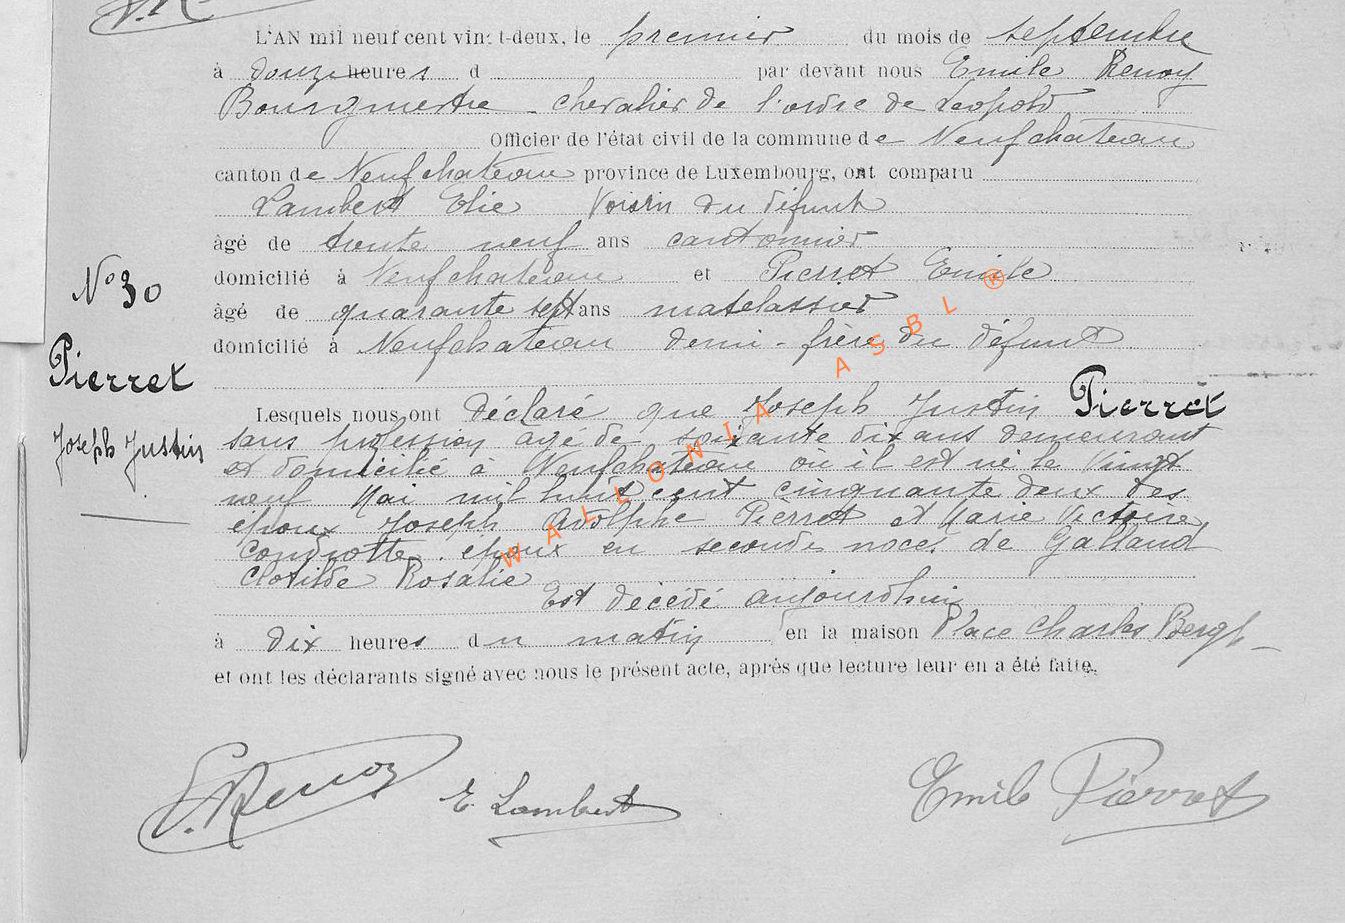 L'AN mil neuf cent vingt-deux, le premier du mois de septembre
à douze heures d par devant nous Emile Renoy
Bourgmestre - chevalier de l'ordre de Léopold
Officier de l'état civil de la commune de Neufchateau
canton de Neufchateau province de Luxembourg, ont comparu
Lambert Elie Voisin du défunt
âgé de trente neuf ans cantonnier
domicilié à Neufchateau et Pierret Emile
N° 30
âgé de quarante sept ans matelassier
domicilié à Neufchateau demi-frère du défunt
Pierret
Joseph Justin
Lesquels nous ont déclaré que Joseph Justin Pierret
sans profession âgé de soixante dix ans demeurant
et domicilié à Neufchateau où il est né le vingt
neuf Mai mil huit cent cinquante deux des
époux Joseph Adolphe Pierret et Marie Victoire
époux en seconde noces de Galland
Clotilde Rosalie
Est décédé aujourd'hui
à dix heures du matin en la maison Place Charles Bergh
et ont les déclarants signé avec nous le présent acte, après que lecture leur en a été faite.
E. Renoy E. Lambert Emile Pierret
WALLONIA ASBL ®